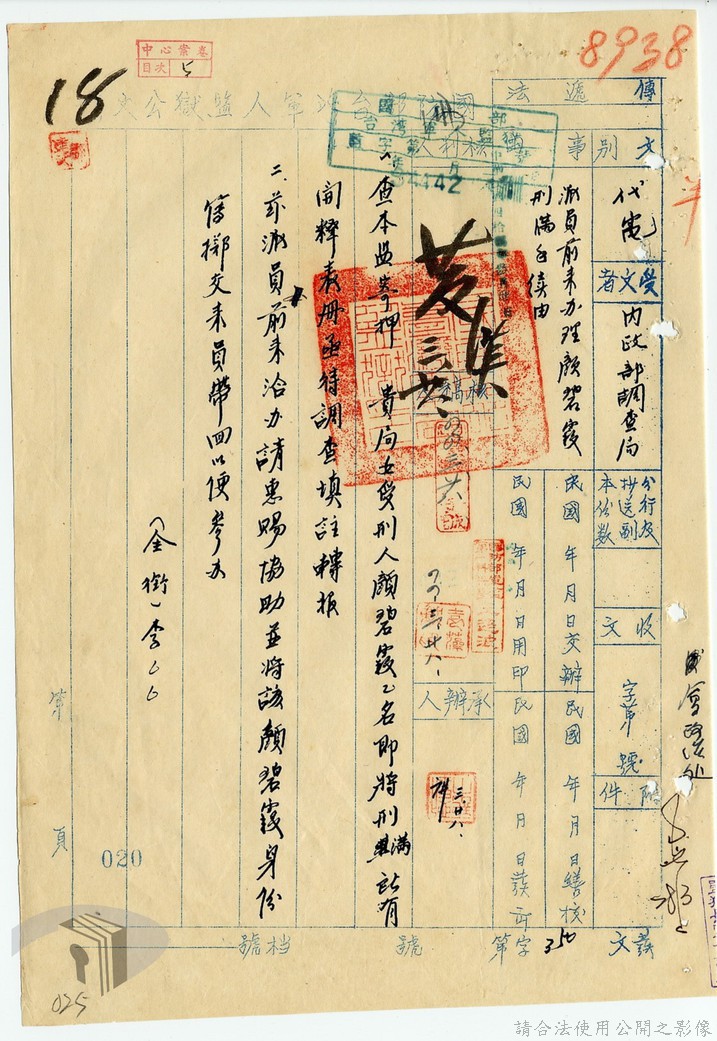 8938
中心案卷
目次 5
18
國防部台灣軍人監獄公文
傳遞法
文別事
代電
受文者
內政部調查局
派員前來办理顏碧霞
刑滿手續由
分行及
抄送副
本份數
收文
字第 號
附件
民國 年 月 日交辦
民國 年 月 日用印
民國 年 月 日繕校
民國 年 月 日發
34442
核稿
承辦人
三.廿八.
一、查本监寄押 貴局女受刑人顏碧霞乙名即將刑滿所有
開釋表册亟待調查填註轉报
二、茲派員前來洽办請惠賜協助並將該顏碧霞身份
簿擲交來員帶回以便參办
(全銜)李○○
第 頁
020
025
档號
號
字第
350
發文
請合法使用公開之影像